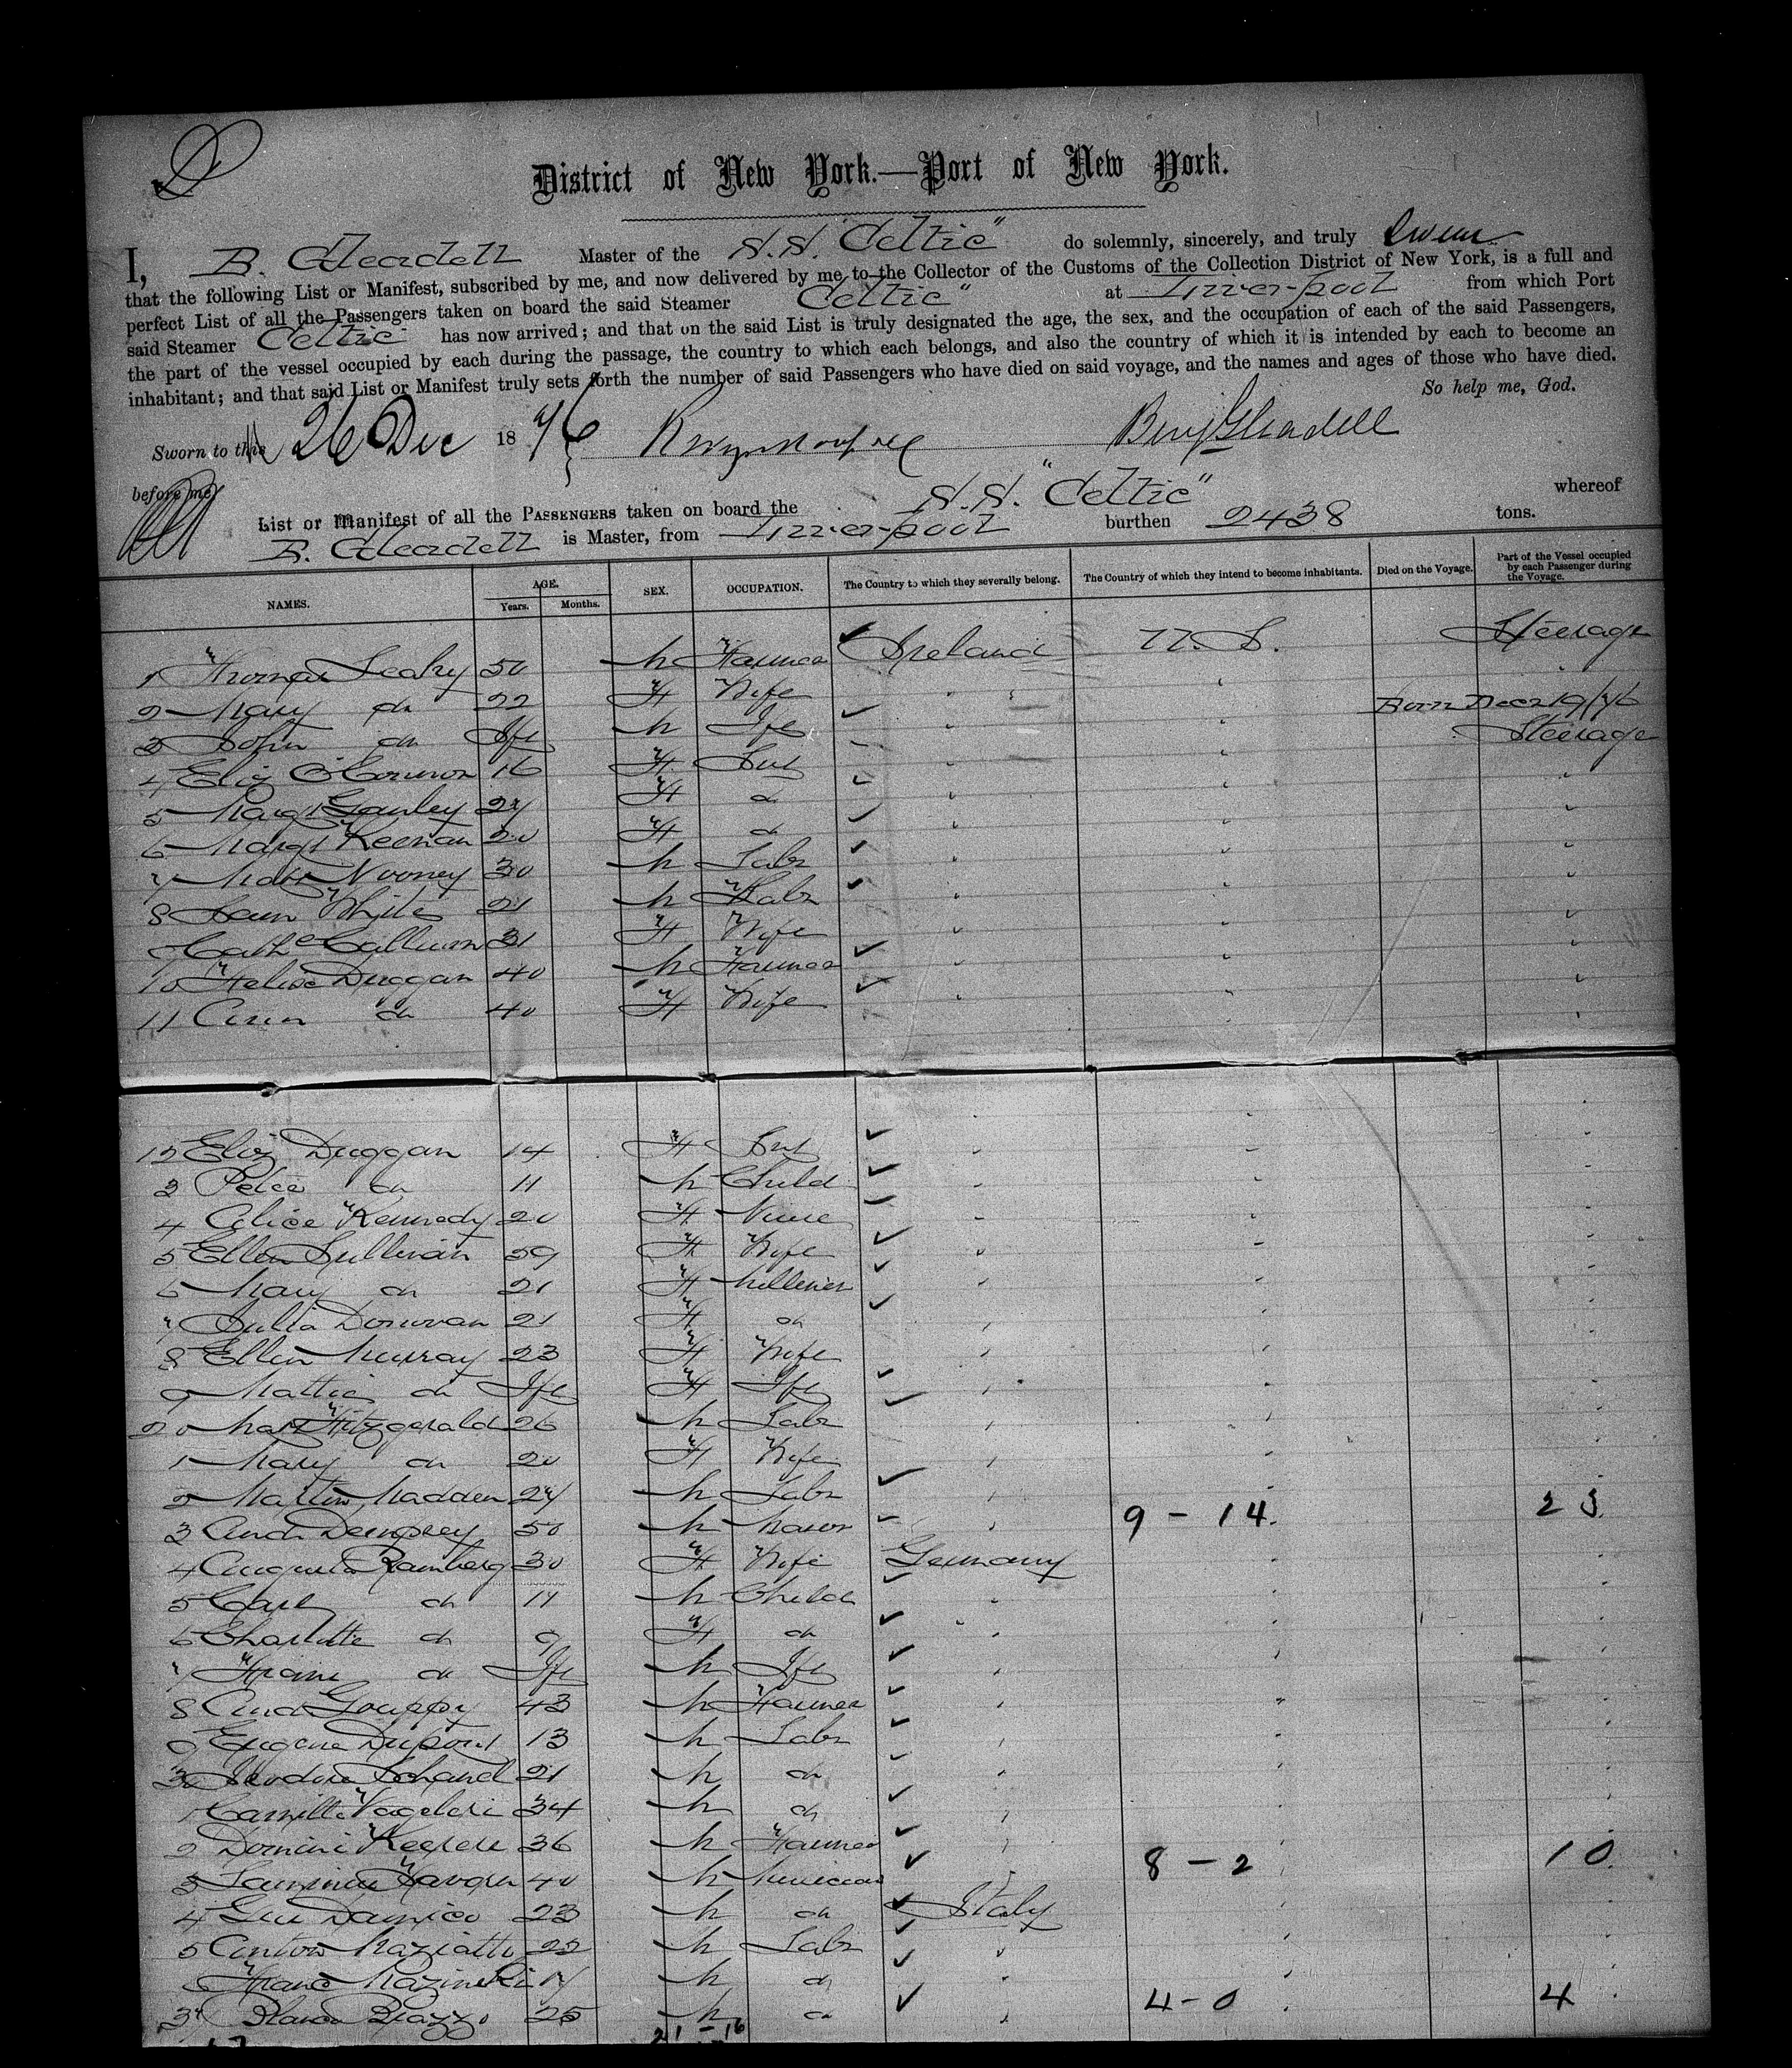 District of New York.—Port of New York.
I, B. Gleadell Master of the S.S. "Celtic" do solemnly, sincerely, and truly swear
that the following List or Manifest, subscribed by me, and now delivered by me to the Collector of the Customs of the Collection District of New York, is a full and
perfect List of all the Passengers taken on board the said Steamer Celtic" at Liverpool from which Port
said Steamer Celtic has now arrived; and that on the said List is truly designated the age, the sex, and the occupation of each of the said Passengers,
the part of the vessel occupied by each during the passage, the country to which each belongs, and also the country of which it is intended by each to become an
inhabitant; and that said List or Manifest truly sets forth the number of said Passengers who have died on said voyage, and the names and ages of those who have died.
So help me, God.
Sworn to this 26 Dec 1876 Benj Gleadell
before me
List or Manifest of all the PASSENGERS taken on board the S.S. "Celtic" whereof
B. Gleadell is Master, from Liverpool burthen 2438 tons.
NAMES. AGE. Years. Months. SEX. OCCUPATION. The Country to which they severally belong. The Country of which they intend to become inhabitants. Died on the Voyage. Part of the Vessel occupied by each Passenger during the Voyage.
1 Thomas Leahy 50 M Farmer Ireland U.S. Steerage
2 Mary do 22 F Wife
3 John do Inf M Inf Born Decr 19/76
4 Eliz O'Connor 16 F Svt Steerage
5 Margt Ganley 27 F do
6 Margt Keenan 20 F do
7 Matt Nooney 30 M Labr
8 Sam White 21 M Labr
9 Cath Callum 31 F Wife
10 Duggan 40 M Farmer
11 Ann do 40 F Wife
12 Eliz Duggan 14 F Svt
3 Peter do 11 M Child
4 Alice Kennedy 20 F Nurse
5 Ellen Sullivan 59 F Wife
6 Mary do 21 F Milliner
7 Julia Donovan 21 F do
8 Ellen Murray 23 F Wife
9 Mattie do Inf F Inf
20 Fitzgerald 26 M Labr
1 Mary do 20 F Wife
2 Martin Madden 27 M Labr
3 And Dempsey 50 M Mason 9 - 14. 23.
4 Augusta Ramberg 30 F Wife Germany
5 Carl do 11 M Child
6 Charlotte do 9 F do
7 Franz do Inf M Inf
8 And 43 M Farmer
9 Eugene Dupont 13 M Labr
30 Schand 21 M do
1 Camille 34 M do
2 36 M Farmer 8 - 2 10.
3 40 M Musician
4 Damico 23 M do Italy
5 Anton 22 M Labr
6 Franc 17 M do
37 25 M do 4 - 0 4
21 - 16